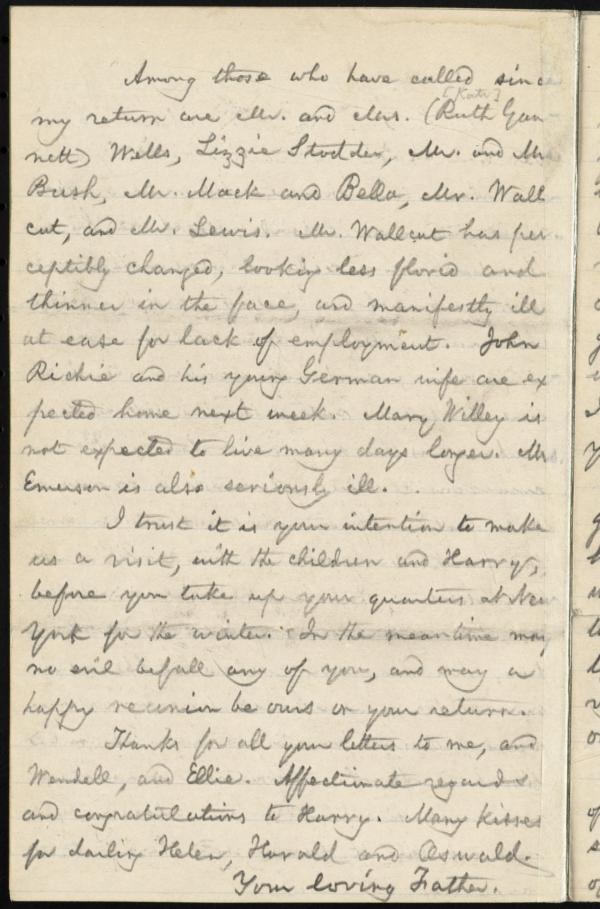 Among those who have called since
[Kate]
my return are Mr. and Mrs. (Ruth Gan-
nett) Wells, Lizzie Stodder, Mr. and Mrs
Bush, Mr. Mack and Bella, Mr. Wall
cut, and Mr. Lewis. Mr. Wallcut has per-
ceptibly changed, looking less florid and
thinner in the face, and manifestly ill
at ease for lack of employment. John
Richie and his young German wife are ex-
pected home next week. Mary Willey is
not expected to live many days longer. Mrs.
Emerson is also seriously ill.
I trust it is your intention to make
us a visit, with the children and Harry,
before you take up your quarters at New
York for the winter. In the meantime may
no evil befall any of you, and may a
happy reunion be ours on your return.
Thanks for all your letters to me, and
Wendell, and Ellie. Affectionate regards
and congratulations to Harry. Many kisses
for darling Helen, Harold and Oswald.
Your loving Father.